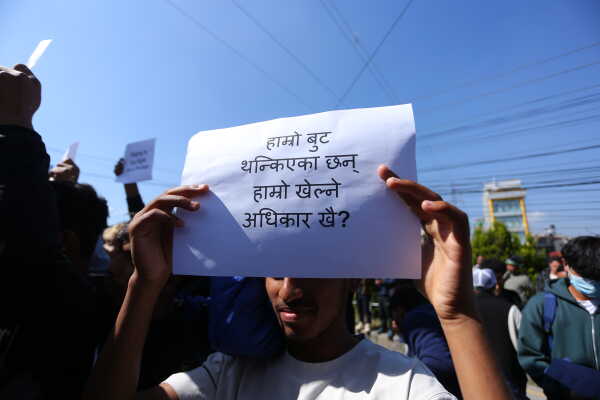 हाम्रो बुट
थन्किएका छन्
हाम्रो खेल्ने
अधिकार खै?